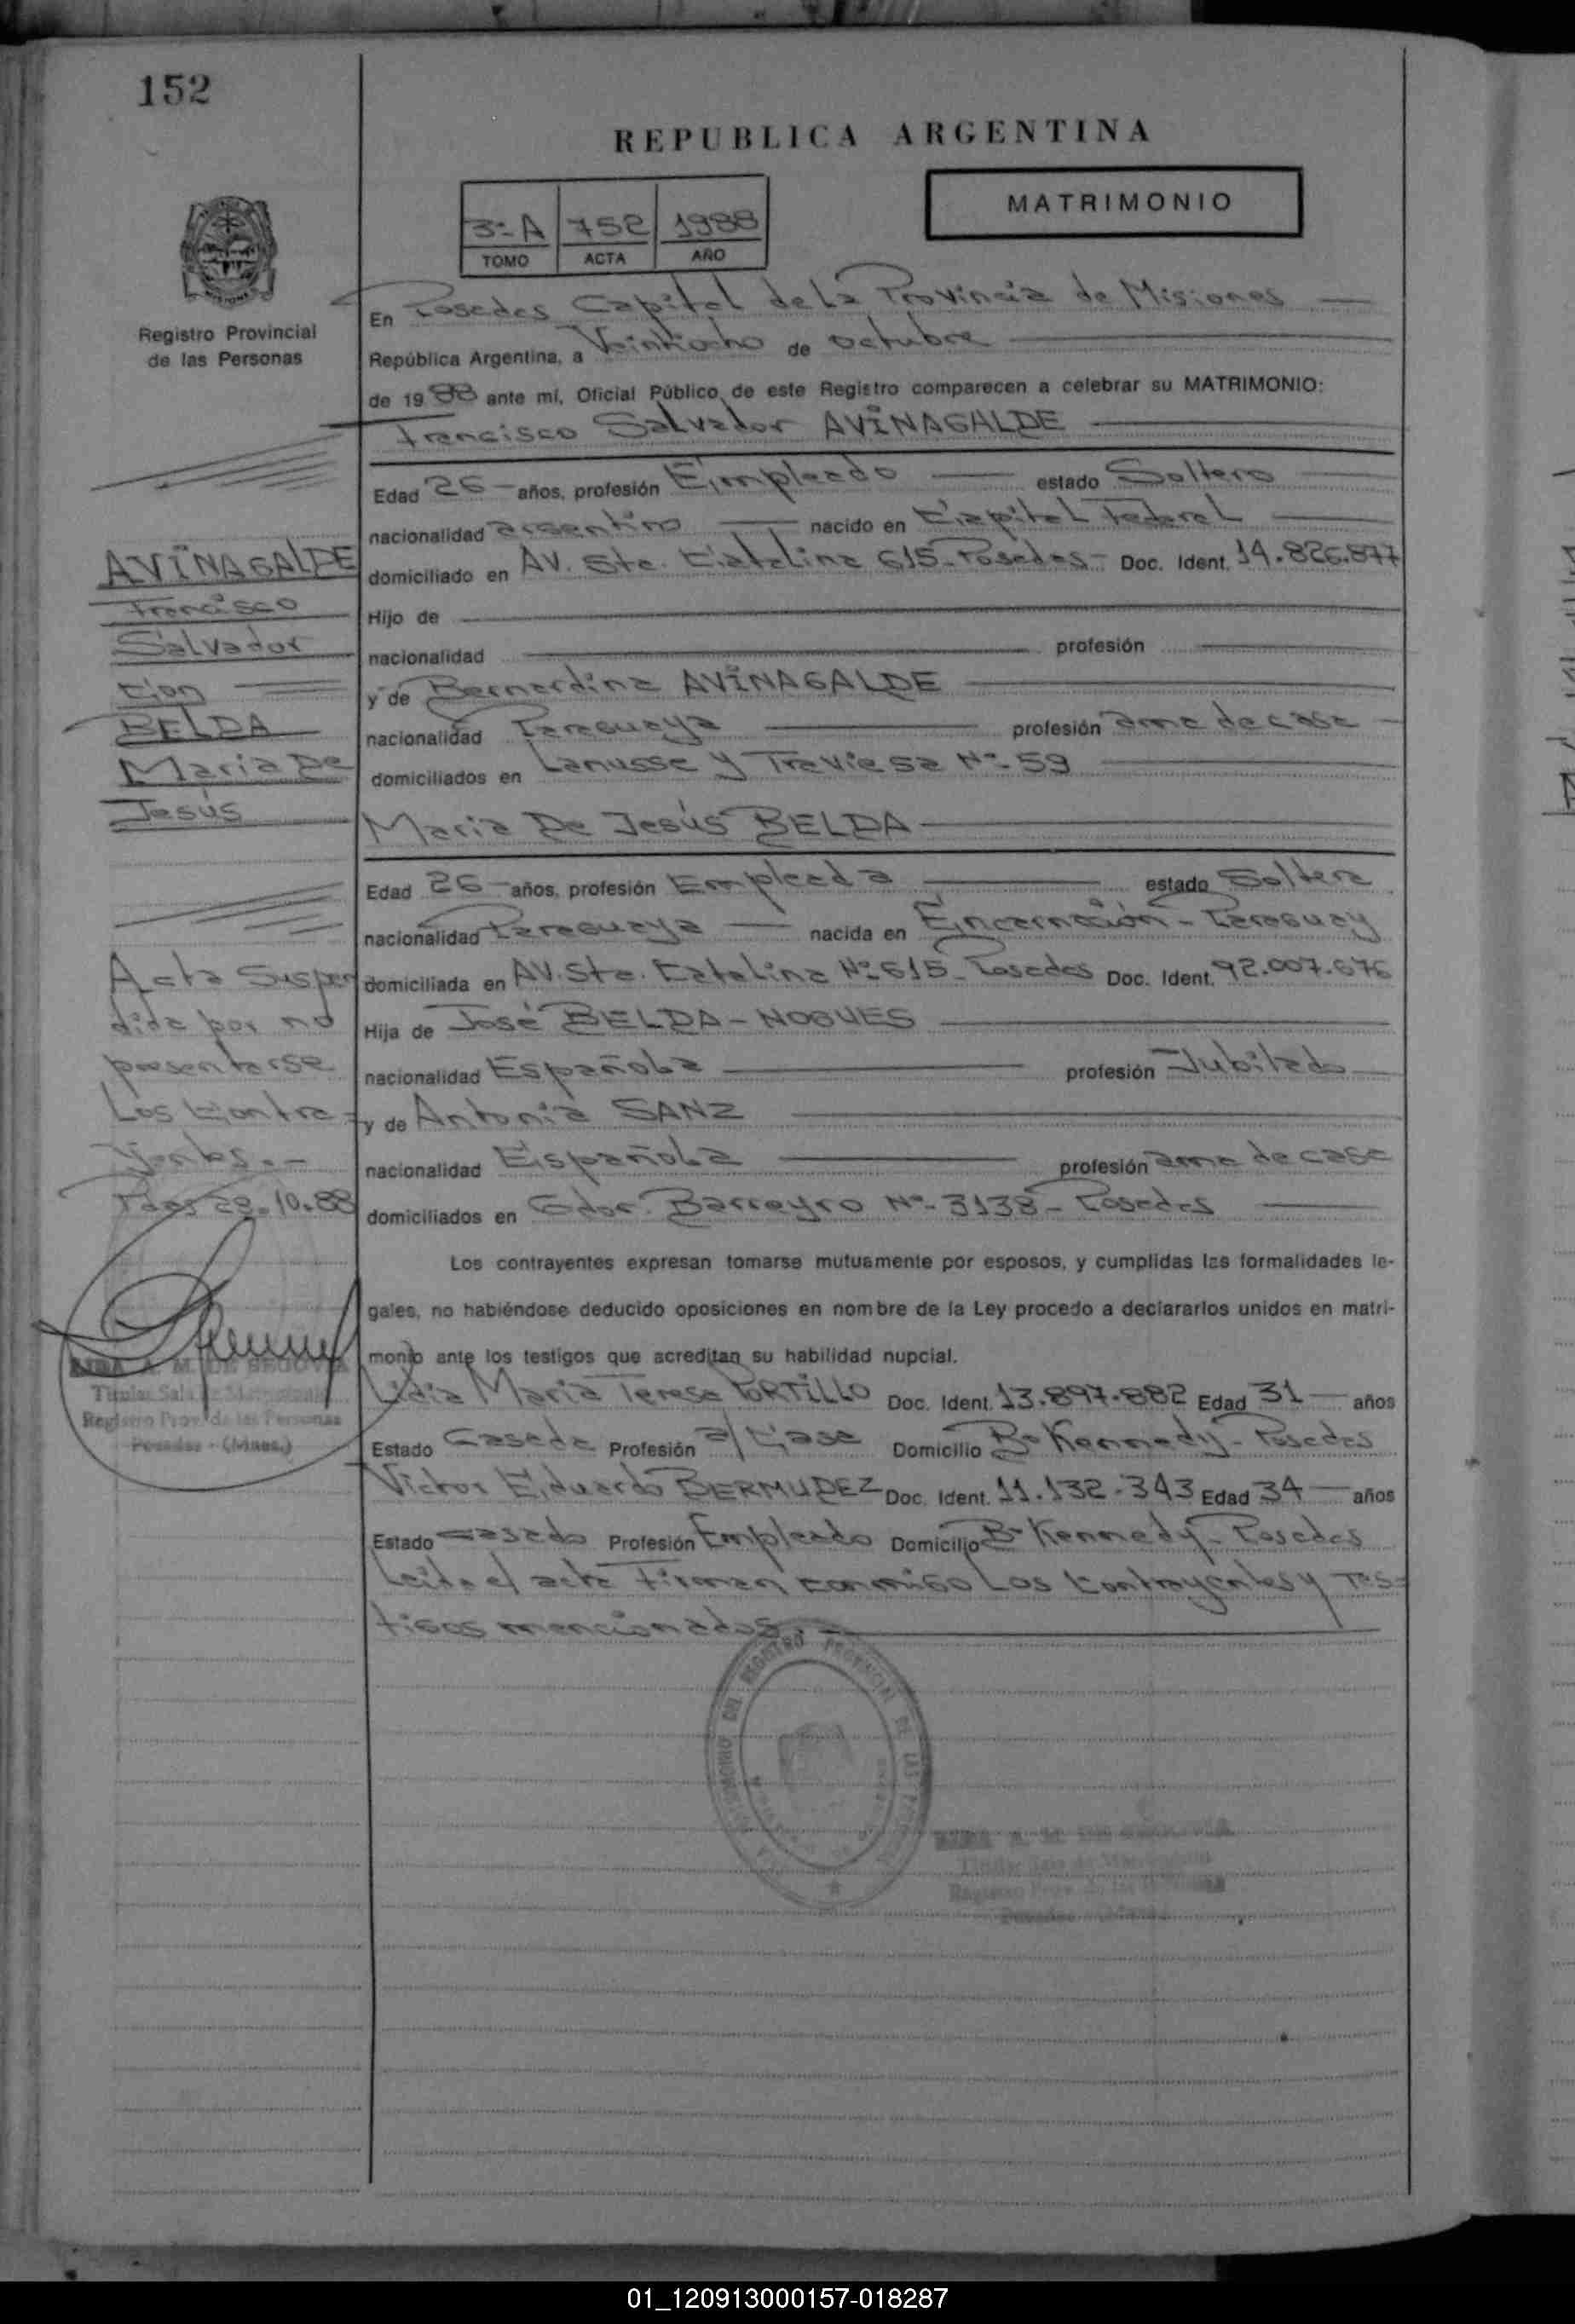 152
REPUBLICA ARGENTINA
MATRIMONIO
3º A 752 1988
TOMO ACTA AÑO
Registro Provincial
de las Personas
En Posadas Capital de La Provincia de Misiones
República Argentina, a Veintiocho de octubre
de 1988 ante mí, Oficial Público de este Registro comparecen a celebrar su MATRIMONIO:
Francisco Salvador AVIÑAGALDE
Edad 26 años, profesión Empleado estado Soltero
nacionalidad argentino nacido en Capital Federal
domiciliado en AV. Sta. Catalina 615- Posadas- Doc. Ident. 14.826.877
Hijo de
nacionalidad profesión
y de Bernardina AVIÑAGALDE
nacionalidad Paraguaya profesión ama de casa
domiciliados en Lanusse y Traviesa Nº 59
María De Jesús BELDA
Edad 26 años, profesión Empleada estado Soltera
nacionalidad Paraguaya nacida en Encarnación - Paraguay
domiciliada en AV. Sta. Catalina Nº 615- Posadas Doc. Ident. 92.007.676
Hija de José BELDA - NOGUES
nacionalidad Española profesión Jubilado
y de Antonia SANZ
nacionalidad Española profesión ama de casa
domiciliados en Gdor. Barreyro Nº 3138- Posadas
Los contrayentes expresan tomarse mutuamente por esposos, y cumplidas las formalidades le-
gales, no habiéndose deducido oposiciones en nombre de la Ley procedo a declararlos unidos en matri-
monio ante los testigos que acreditan su habilidad nupcial.
Lidia María Teresa PORTILLO Doc. Ident. 13.897.882 Edad 31 años
Estado Casada Profesión a/Casa Domicilio Bº Kennedy- Posadas
Victor Eduardo BERMUDEZ Doc. Ident. 11.132.343 Edad 34 años
Estado casado Profesión Empleado Domicilio Bº Kennedy- Posadas
Leida el acta Firman conmigo Los contrayentes y Tes=
tigos mencionados.-
AVIÑAGALDE
Francisco
Salvador
con
BELDA
María De
Jesús
Acta Suspen
dida por no
presentarse
Los Contra=
yentes.-
Pdas 28.10.88
A. M. DE SEGOVIA
Titular Sala de Matrimonio
Registro Prov. de las Personas
Posadas - (Mnes.)
DEL REGISTRO PROVINCIAL DE LAS
Registro Prov. de las
01_120913000157-018287